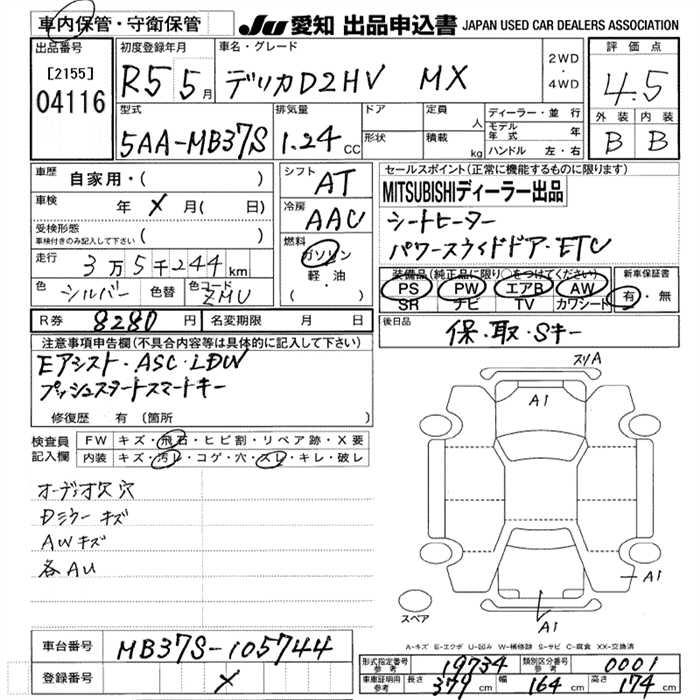 車内保管・守衛保管
JU 愛知 出品申込書 JAPAN USED CAR DEALERS ASSOCIATION
出品番号
[2155]
04116
初度登録年月
R5 5月
車名・グレード
デリカD2HV MX
2WD
・
4WD
評価点
4.5
外装 内装
B B
型式
5AA-MB37S
排気量
1.24 CC
ドア
形状
定員 人
積載 kg
ディーラー・並行
モデル年式 年
ハンドル 左・右
車歴 自家用・( )
車検 年 X 月( 日)
受検形態
車検付きのみ記入して下さい ( )
走行 3万5千244km
色 シルバー 色替 色コード ZMU
シフト AT
冷房 AAC
燃料
ガソリン
軽・油
( )
セールスポイント(正常に機能するものに限ります)
MITSUBISHIディーラー出品
シートヒーター
パワースライドドア・ETC
装備品(純正品に限り○をつけてください)
PS PW エアB AW
SR ナビ TV カワシート
新車保証書
有・無
R券 8280円 名変期限 月 日
後日品
保・取・Sキー
注意事項申告欄(不具合内容等は具体的に記入して下さい)
Eアシスト・ASC・LDW
プッシュスタートスマートキー
修復歴 有 (箇所 )
検査員記入欄
FW キズ・飛石・ヒビ割・リペア跡・X要
内装 キズ・汚レ・コゲ・穴・スレ・キレ・破レ
オーディオ欠 穴
Dミラー キズ
AWキズ
各AU
スリA
A1
A1
A1
スペア
A-キズ E-エクボ U-凹み W-補修跡 S-サビ C-腐食 XX-交換済
車台番号 MB37S-105744
登録番号 X
形式指定番号 参考 19734 類別区分番号 参考 0001
車庫証明用 参考 長さ 379cm 幅 164cm 高さ 174cm